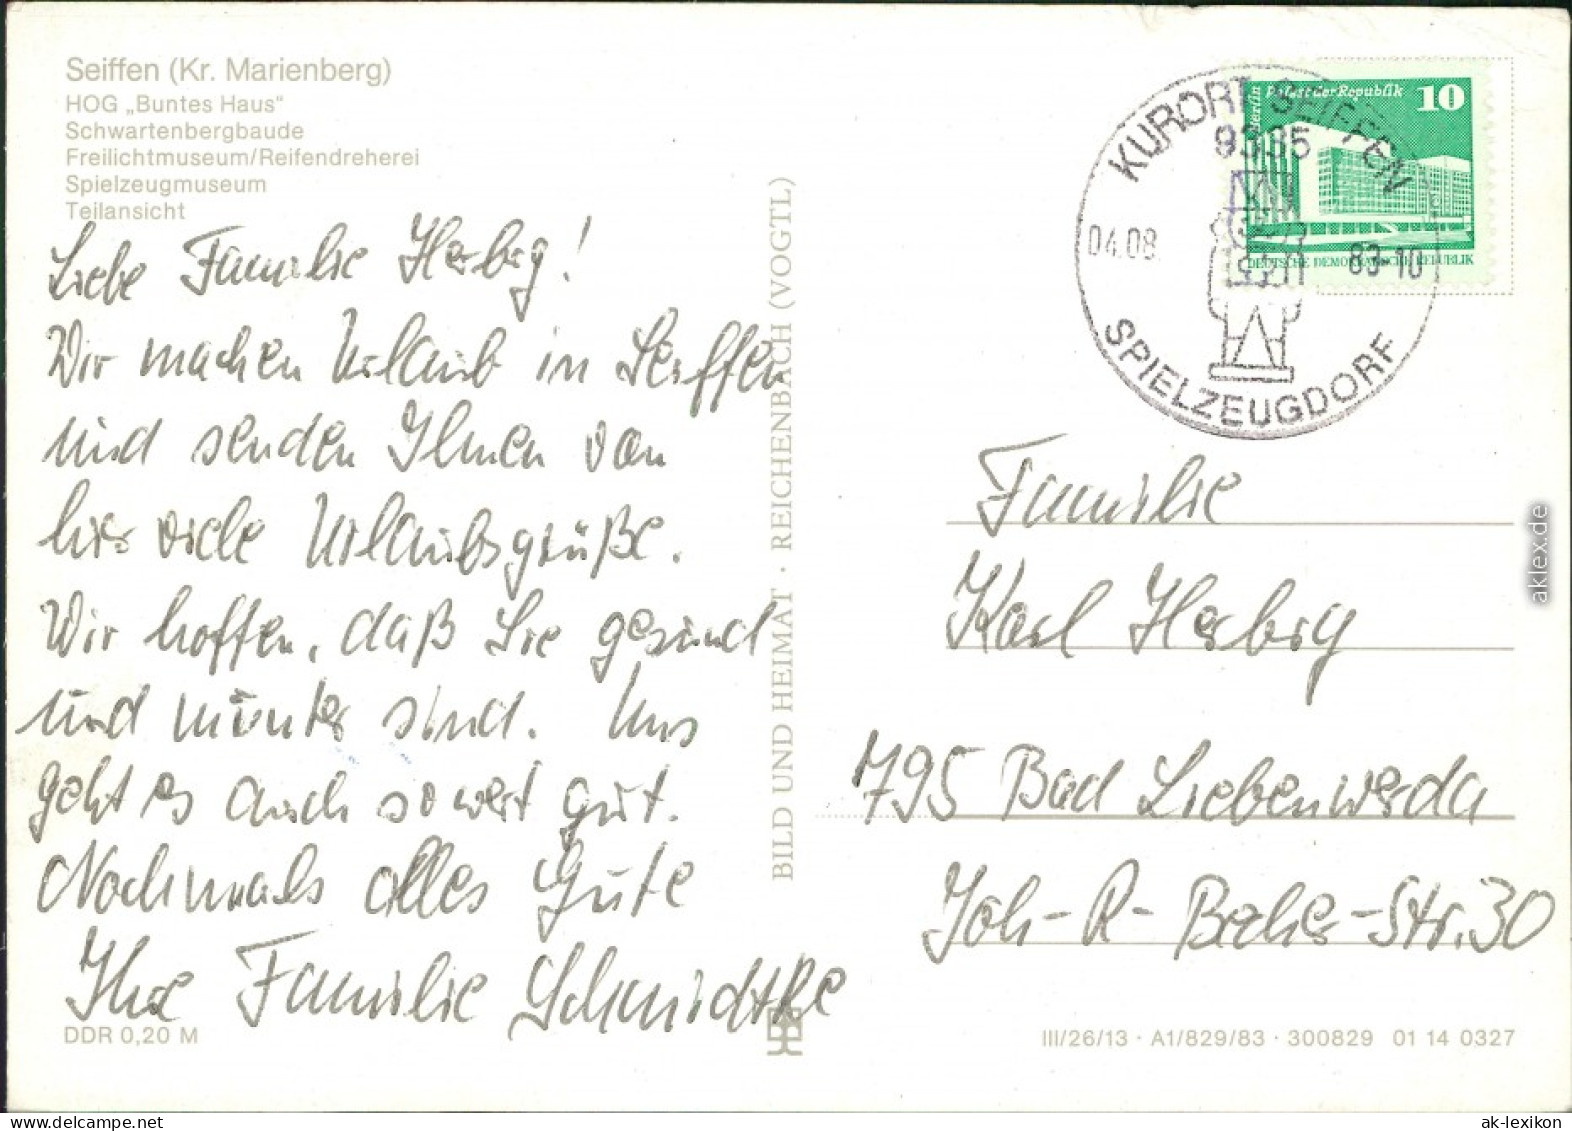 Seiffen (Kr. Marienberg)
HOG „Buntes Haus"
Schwartenbergbaude
Freilichtmuseum/Reifendreherei
Spielzeugmuseum
Teilansicht
Liebe Familie Herbrig!
Wir machen Urlaub in Seiffen
und senden Ihnen von
hier viele Urlaubsgrüße.
Wir hoffen, daß Sie gesund
und munter sind. Uns
geht es auch soweit gut.
Nochmals alles Gute
Ihre Familie Schmidtke
DDR 0,20 M
BILD UND HEIMAT · REICHENBACH (VOGTL)
Berlin Palast der Republik 10
DEUTSCHE DEMOKRATISCHE REPUBLIK
KURORT SEIFFEN
9335
04.08. 83-10
SPIELZEUGDORF
Familie
Karl Herbrig
795 Bad Liebenwerda
Joh-R-Becher-Str. 30
III/26/13 · A1/829/83 · 300829 01 14 0327
aklex.de
ak-lexikon